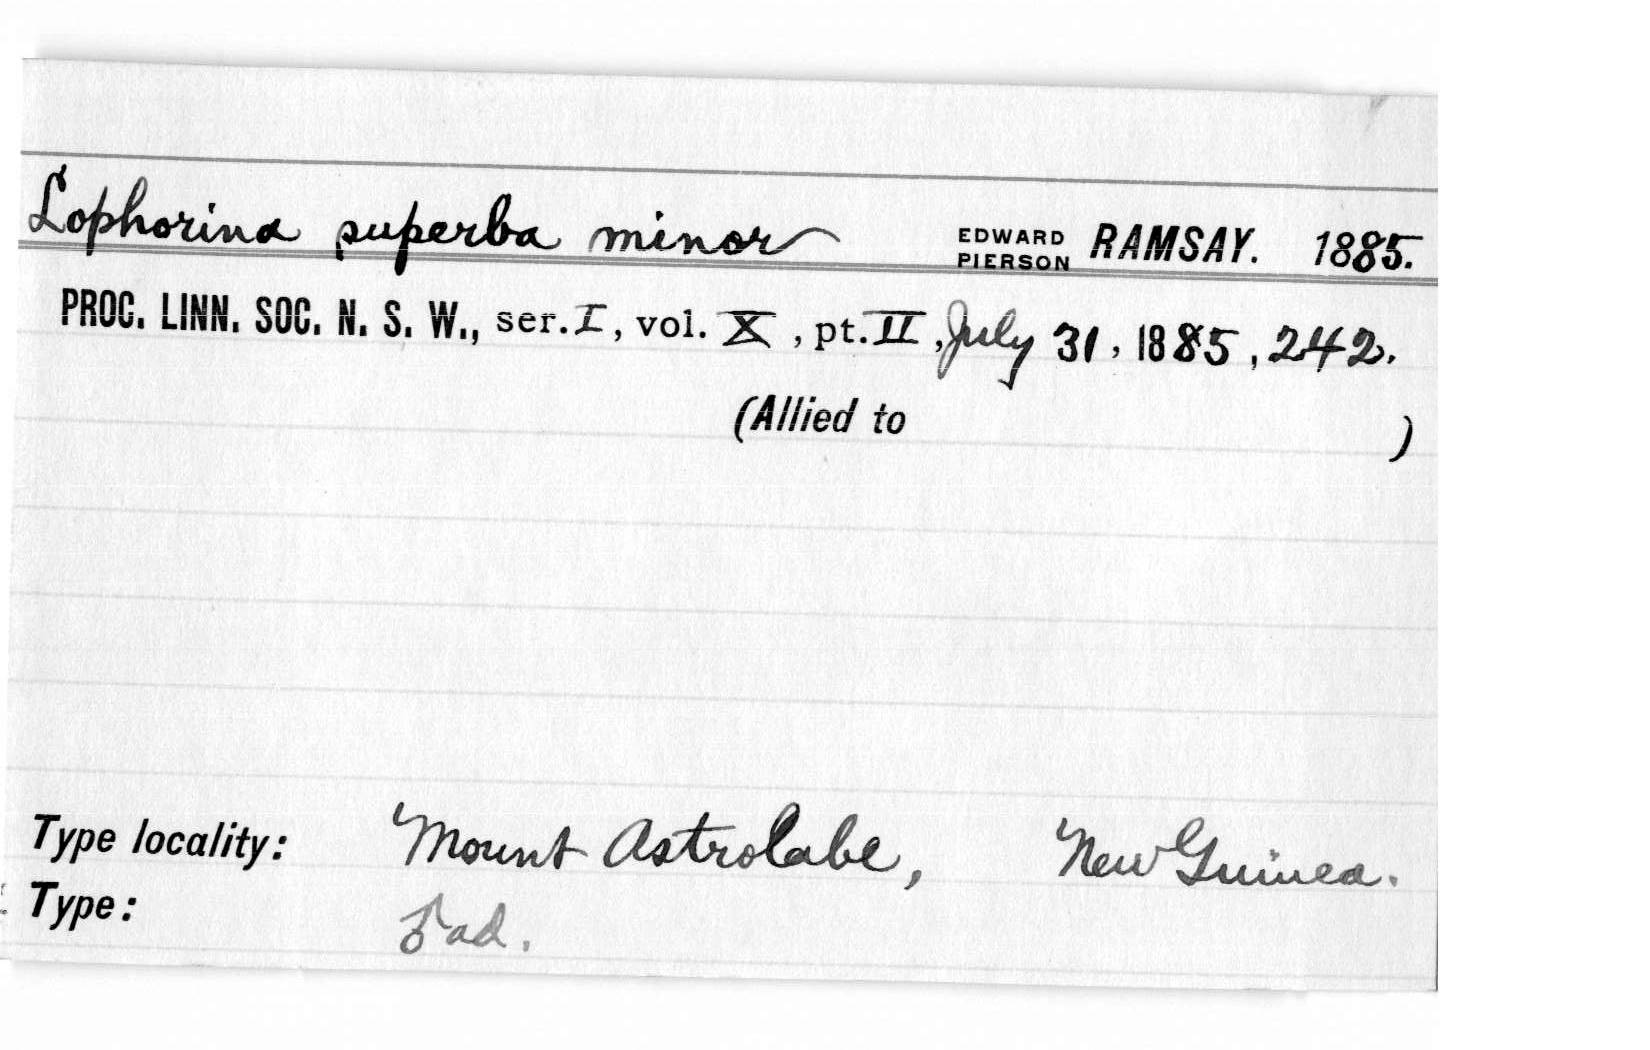 Lophorina superba minor EDWARD PIERSON RAMSAY. 1885.
PROC. LINN. SOC. N. S. W., ser. I, vol. X, pt. II, July 31, 1885, 242.
(Allied to )
Type locality: Mount Astrolabe, New Guinea.
Type: ♂ ad.